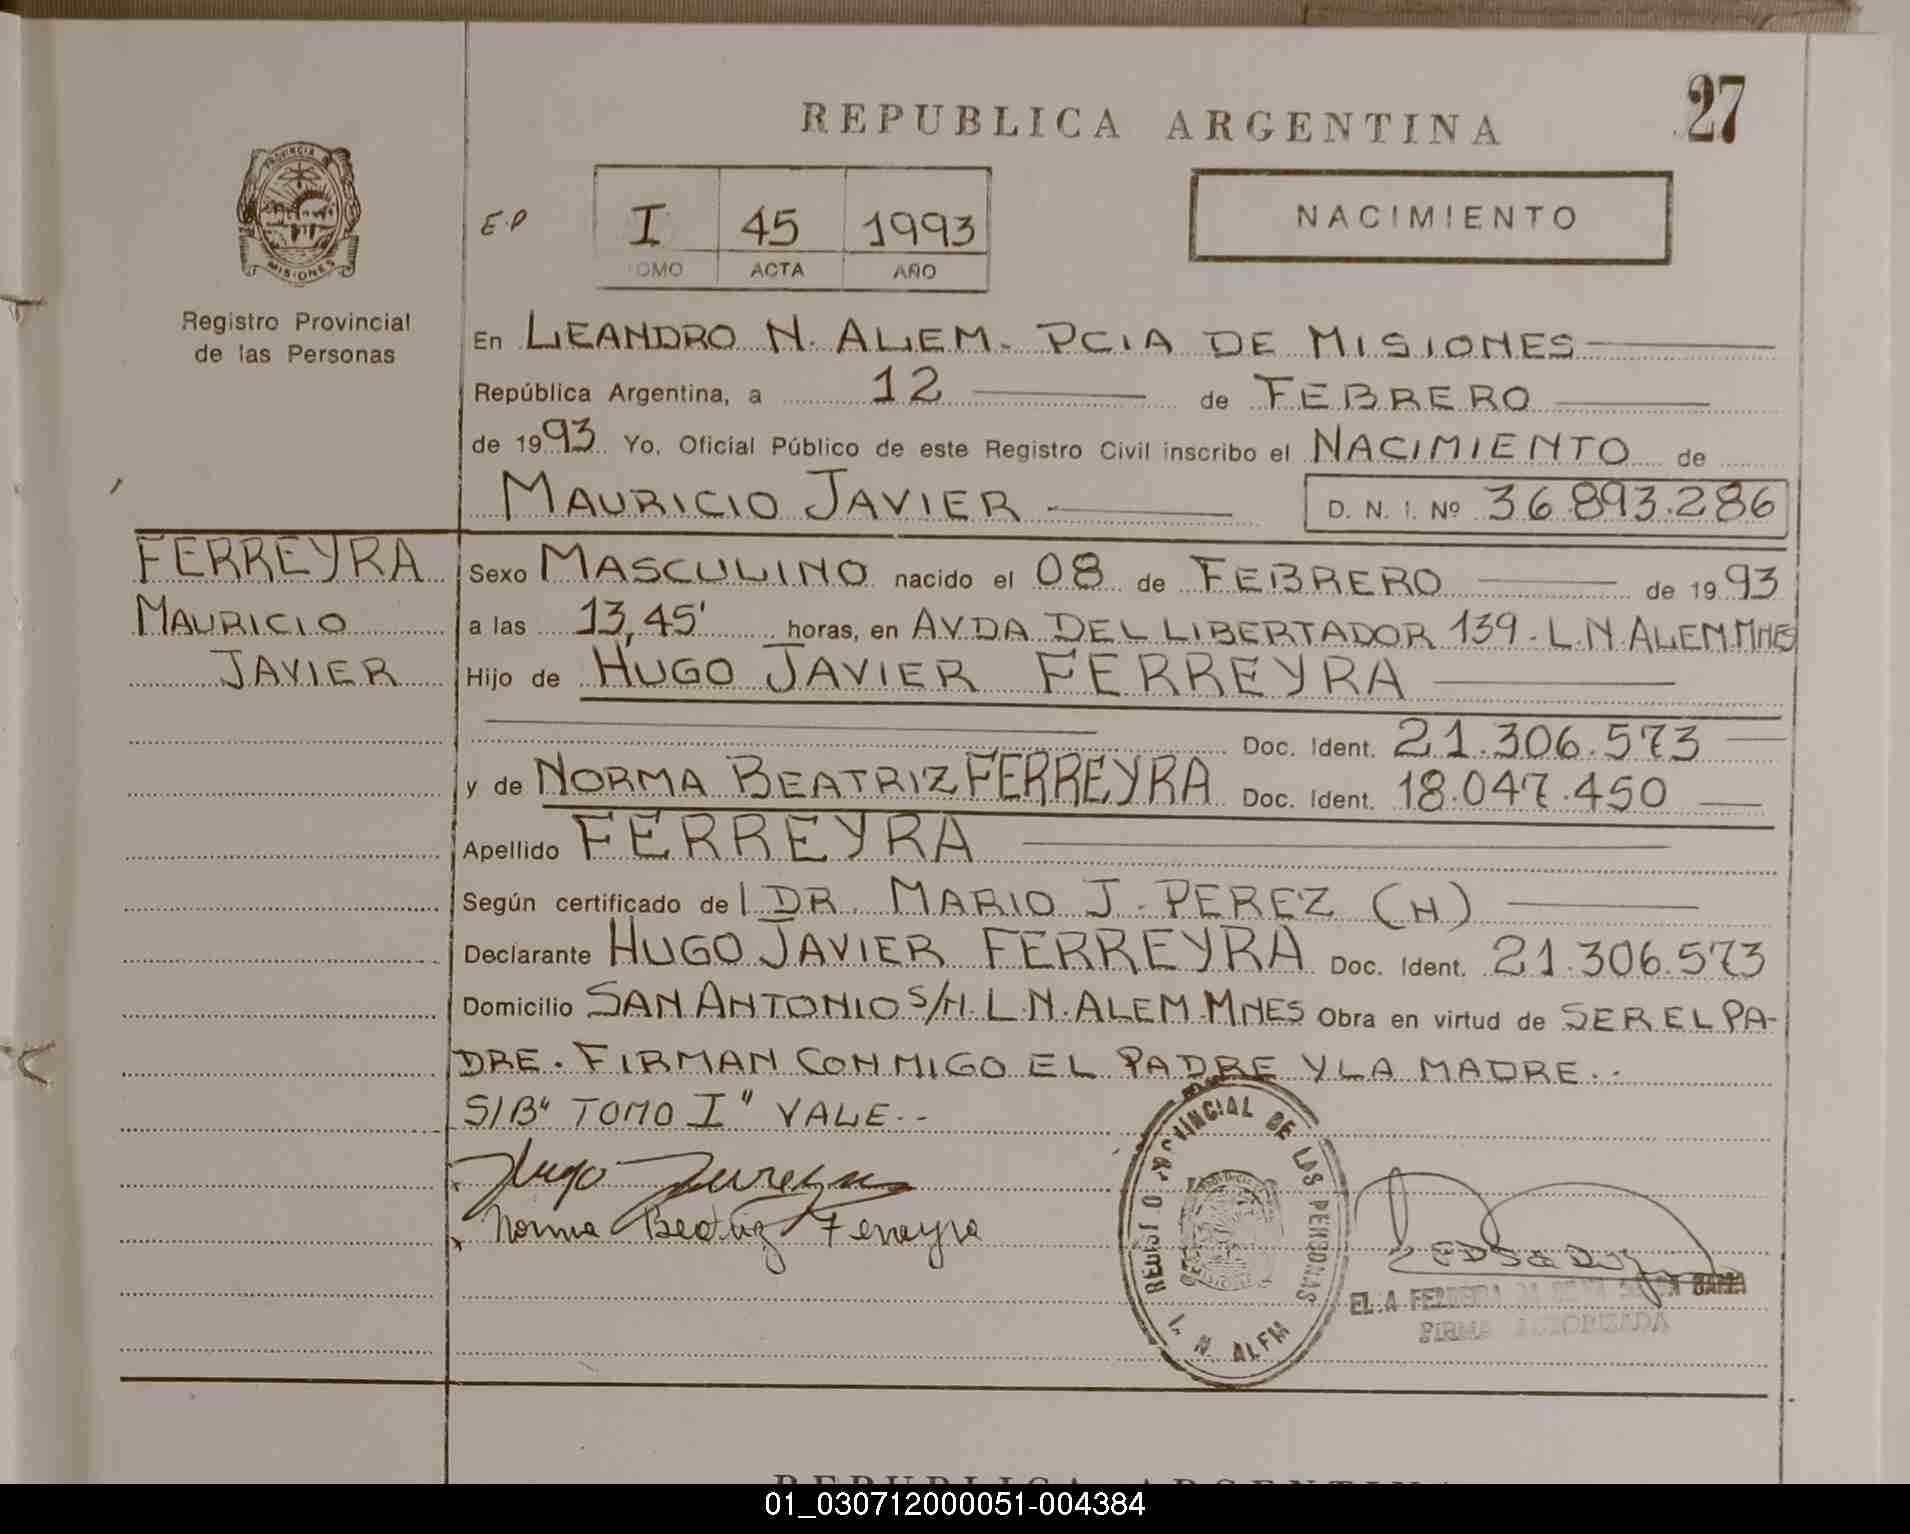 27
REPUBLICA ARGENTINA
PROVINCIA
MISIONES
E.P I 45 1993
TOMO ACTA AÑO
NACIMIENTO
Registro Provincial
de las Personas
En LEANDRO N. ALEM - PCIA DE MISIONES
República Argentina, a 12 de FEBRERO
de 1993 Yo, Oficial Público de este Registro Civil inscribo el NACIMIENTO de
MAURICIO JAVIER D. N. I. Nº 36.893.286
FERREYRA
MAURICIO
JAVIER
Sexo MASCULINO nacido el 08 de FEBRERO de 1993
a las 13,45' horas, en AVDA DEL LIBERTADOR 139. L.N. ALEM.MNES
Hijo de HUGO JAVIER FERREYRA
Doc. Ident. 21.306.573
y de NORMA BEATRIZ FERREYRA Doc. Ident. 18.047.450
Apellido FERREYRA
Según certificado de l DR. MARIO J. PEREZ (H)
Declarante HUGO JAVIER FERREYRA Doc. Ident. 21.306.573
Domicilio SAN ANTONIO S/N. L.N. ALEM.MNES Obra en virtud de SER EL PA-
DRE. FIRMAN CONMIGO EL PADRE Y LA MADRE..
S/B" TOMO I" VALE.-
Hugo Ferreyra
Norma Beatriz Ferreyra
REGISTRO PROVINCIAL DE LAS PERSONAS
L. N. ALEM
FERREIRA
FIRMA AUTORIZADA
REPUBLICA ARGENTINA
01_030712000051-004384